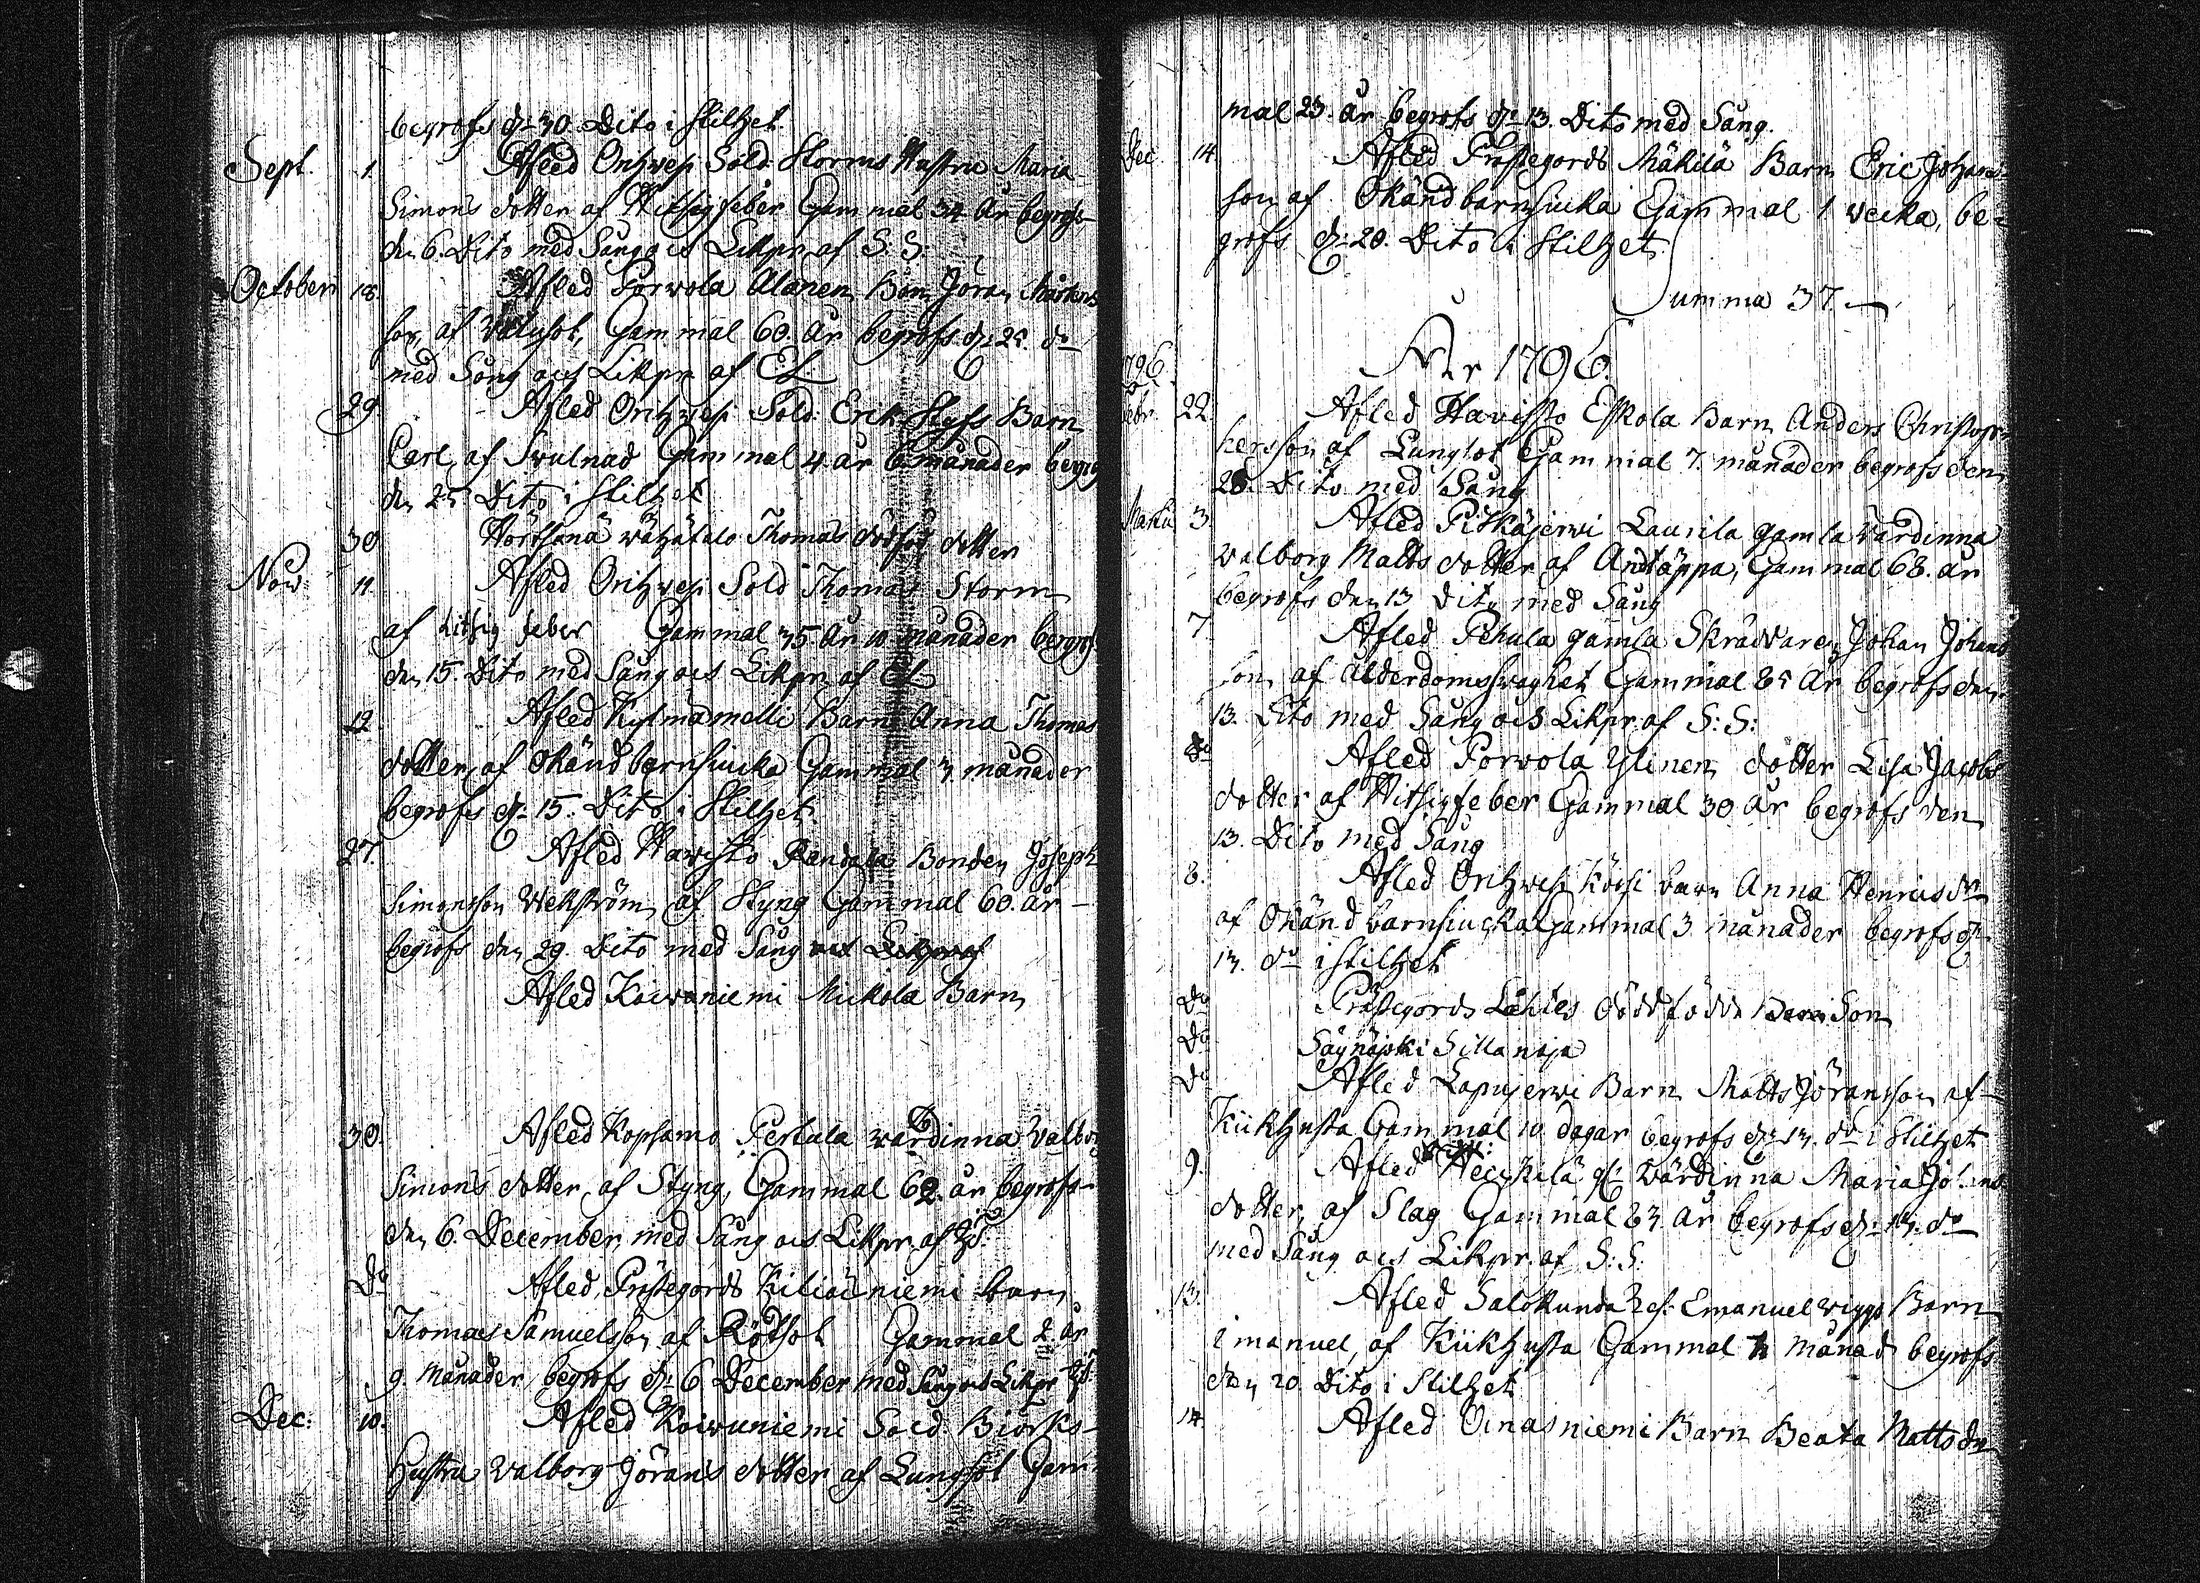 begrofs d: 30 Dito i stillhet.
Sept. 1. Afled Orihvesi Sold. Storms Hustru Maria
Simons dotter af Hitsig feber Gammal 34 år begrofs
den 6. Dito med Sång och Likpr. af S: S:
October 18. Afled Porvola Alanen Bon. Jöran Mårtens
son, af Gammal 60. år begrofs d: 25. do
med Sång och Likpr. af EL
29. Afled Orihvesi Sold: Erik Slyfs Barn
Carl, af Gammal 4. år 6. månader begrof
den 25 Dito i stillhet
30 Wähätalo Thomas dödfödd dotter
Nov: 11. Afled Orihvesi Sold Thomas Storm
af hitsig feber Gammal 35 år 10 månader begrof
den 15. Dito med Sång och Likpr. af EL
12. Afled Kylmämelli Barn Anna Thomas
dotter, af Okänd barnsiucka Gammal 3 månader
begrofs d: 15. Dito i stillhet.
27. Afled Havisto Bonden Joseph
Simonsson Wekström, af Styng Gammal 60. år
begrofs den 29. Dito med Sång och Likpr af
Afled Koivoniemi Mickola Barn
30. Afled Kopsamo Pertula värdinna Valborg
Simons dotter, af Styng, Gammal 62. år begrofs
den 6. December, med Sång och Likpr. af
Do Afled, Prästegords Kiliäniemi barn
Thomas Samuelson af Rötsot Gammal 2. år
9. Månader begrofs d: 6 December med Sång och Likpr
Dec: 10. Afled Koivuniemi Sold. Biörks
Hustru Valborg Jörans dotter af Lungsot Gam
mal 23. år begrofs d: 13. Dito med Sång.
Dec 14 Afled Prästegords Mäkilä Barn Eric Johans
son af Okänd barnsiucka Gammal 1 vecka, be-
grofs d: 20. Dito i stillhet
Summa 37.
År 1796.
1796.
Febr. 22 Afled Havisto Eskola Barn Anders Christop
hersson af Lungsot Gammal 7. månader begrofs den
28. Dito med Sång
Martii 3. Afled Pitkäjervi Laurila gamla värdinna
Valborg Matts dotter af Andtäppa, Gammal 68. år
begrofs den 13 Dito med Sång
7. Afled Pehula gamla Skräddaren Johan Johans
son, af ålderdomssvaghet Gammal 85 år begrofs den
13. Dito med Sång och Likpr. af S: S:
Do Afled Porvola Ylinen dotter Lisa Jacobs
dotter af Hitsigfeber Gammal 30 år begrofs den
13. Dito med Sång
8. Afled Orihvesi barn Anna Henricsdr
af Okänd barnsiucka Gammal 3 månader begrofs d:
13. do i stillhet
Do Prästegords Lähties dödfödd Son
Do Säynäjoki Sillanoja
Do Afled Lapinjervi Barn Matts Jöransson af
Kikhusta Gammal 10 dagar begrofs d: 13. do i stillhet
9. Afled Heickilä gl: Värdinna Maria Johans
dotter, af Slag Gammal 83. år begrofs d: 13. do
med Sång och Likpr. af S: S:
13. Afled Salokunda Emanuel Barn
Emanuel, af Kikhusta Gammal månad begrofs
den 20. Dito i stillhet
14. Afled Oinasniemi Barn Beata Matts dr